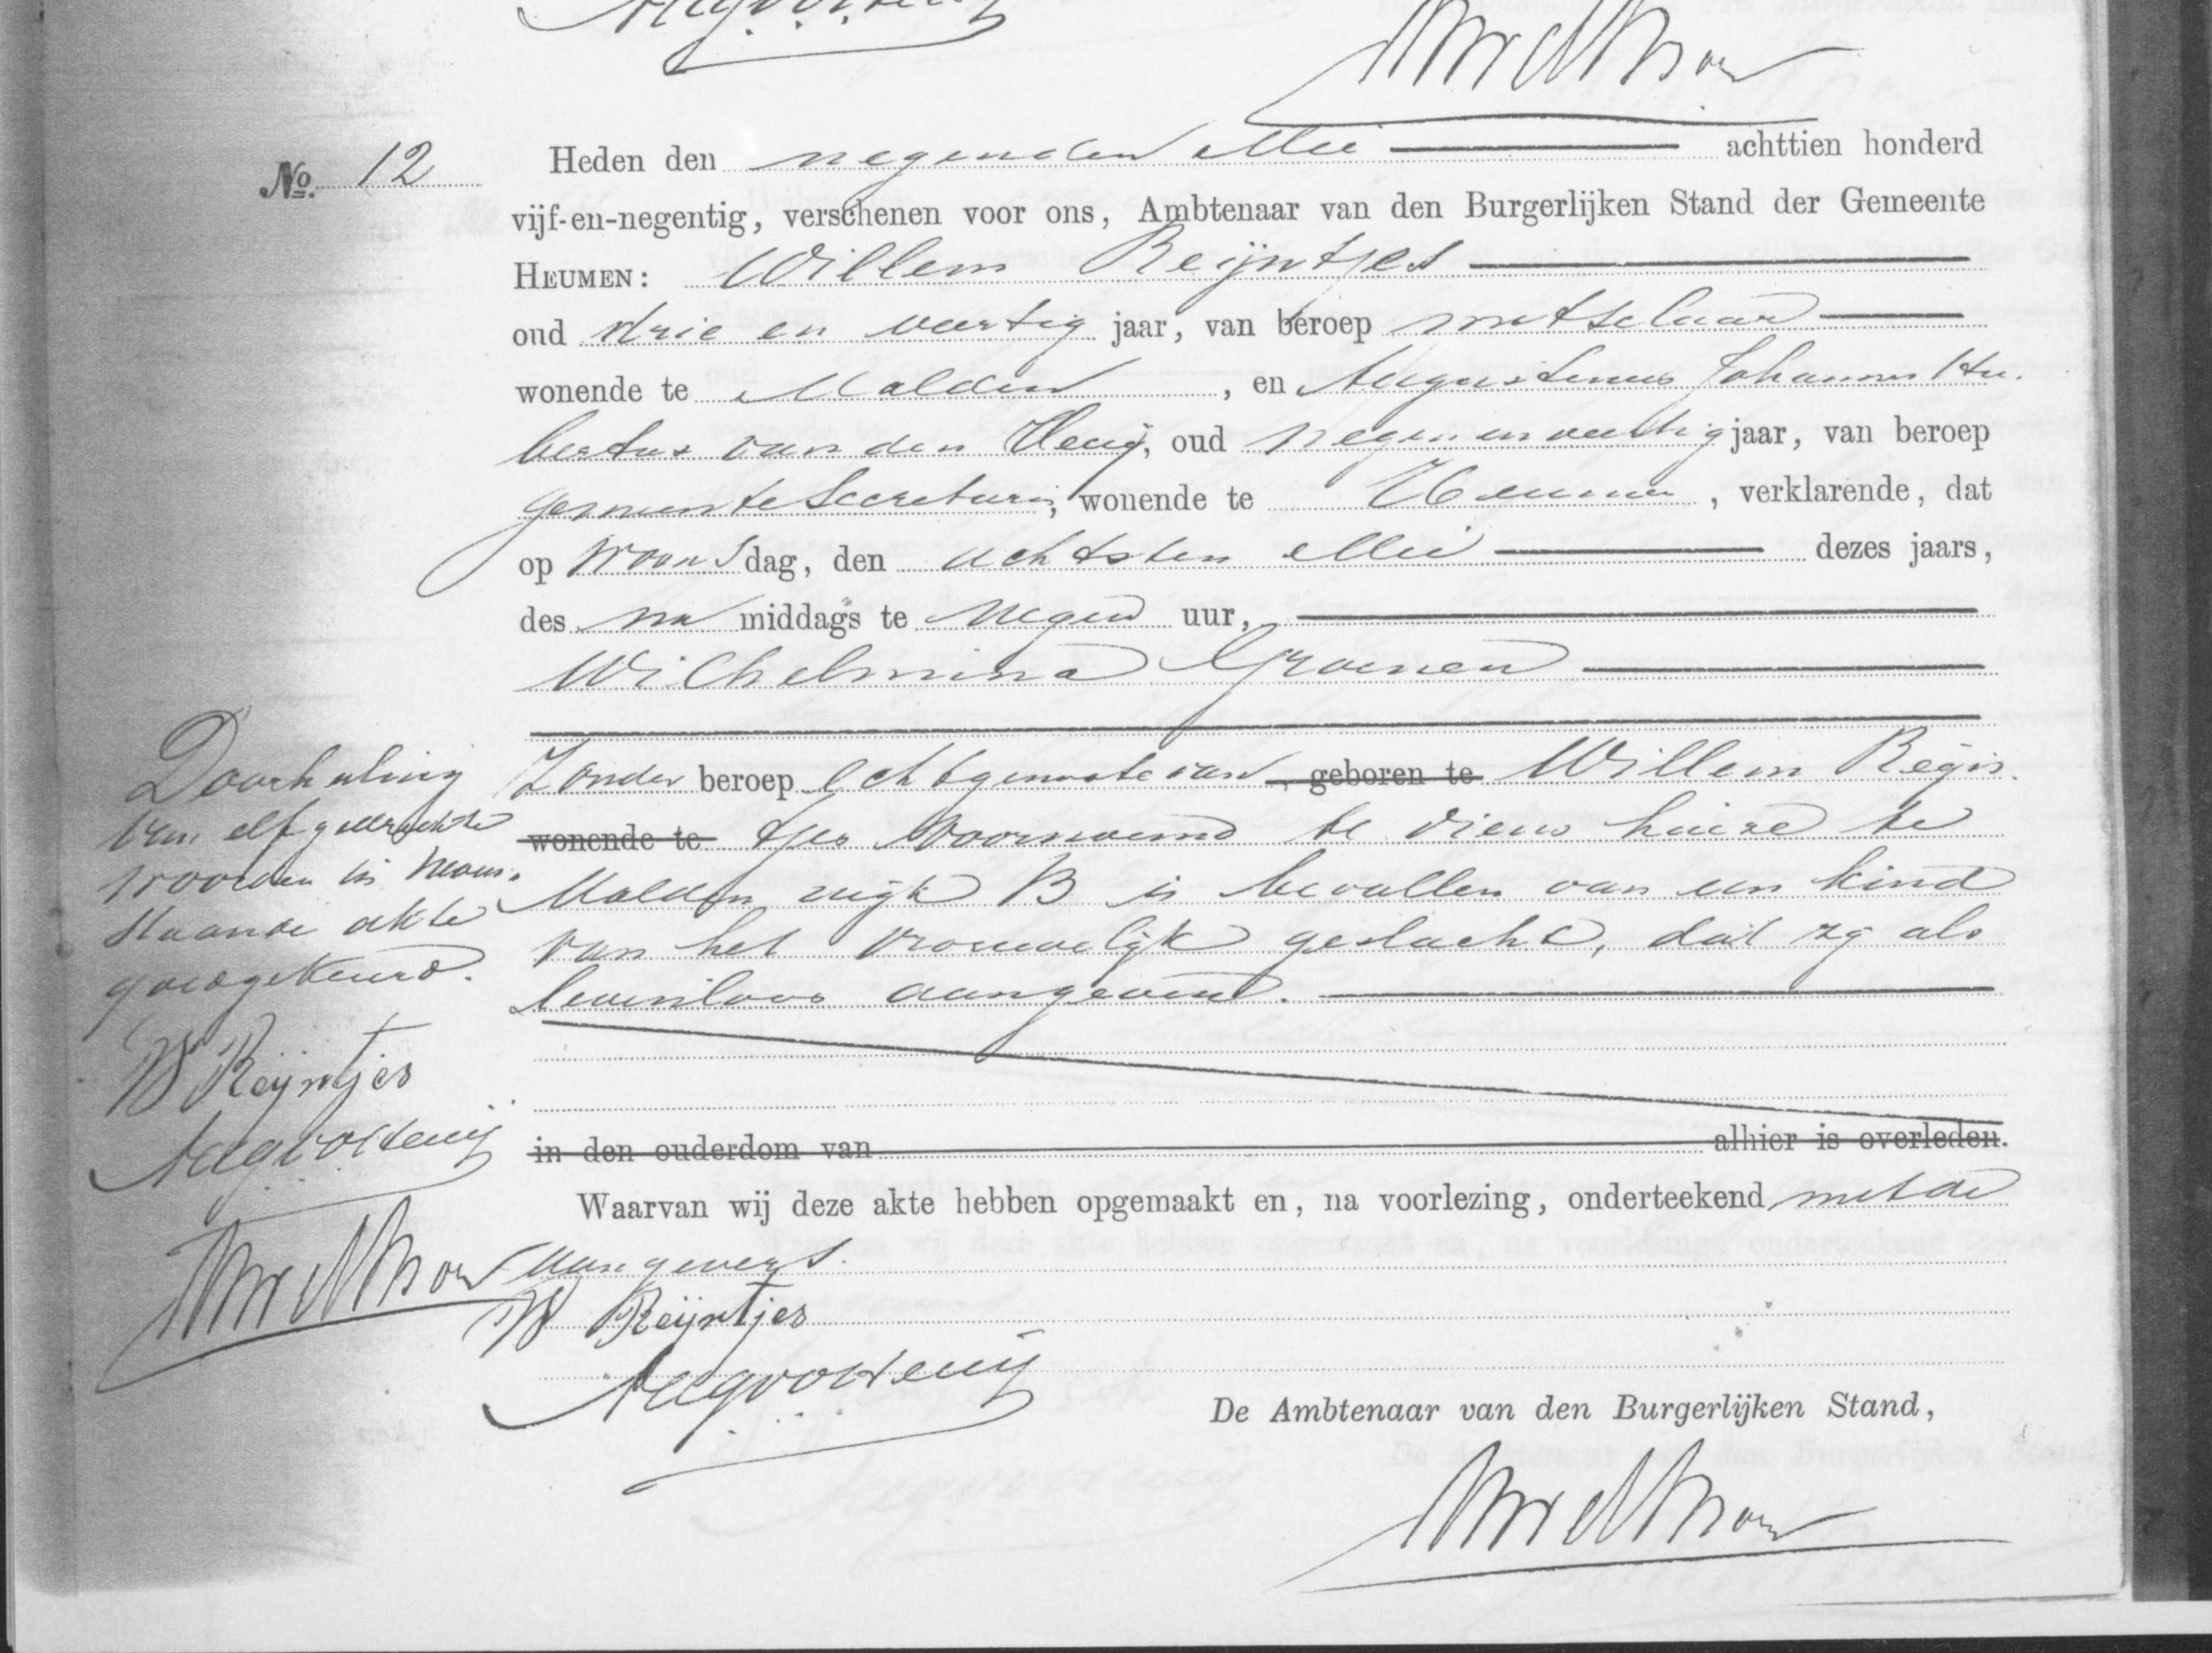 No. 12
Heden den negenden Mei achttien honderd
vijf-en-negentig, verschenen voor ons, Ambtenaar van den Burgerlijken Stand der Gemeente
HEUMEN: Willem Reijntjes
oud drie en veertig jaar, van beroep metselaar
wonende te Malden, en Augustinus Johannes Hu-
bertus van den Heuij, oud negen en veertig jaar, van beroep
gemeente Secretaris, wonende te Heumen, verklarende, dat
op woensdag, den achtsten Mei dezes jaars,
des na middags te negen uur,
Wilhelmina Groenen
Zonder beroep echtgenoote van, geboren te Willem Reijn-
wonende te tjes voornoemd te diens huize te
Malden wijk B is bevallen van een kind
van het vrouwelijk geslacht, dat zij als
levenloos aangeven.
in den ouderdom van alhier is overleden.
Waarvan wij deze akte hebben opgemaakt en, na voorlezing, onderteekend met de
aangevers.
W Reijntjes
De Ambtenaar van den Burgerlijken Stand,
Doorhaling
van elf gedrukte
woorden in neven-
staande akte
goedgekeurd.
W Reijntjes